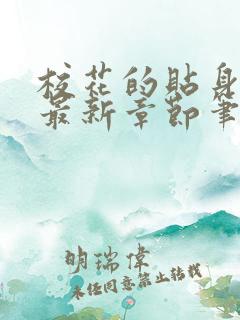 校花的贴身
最新章节笔
明瑞偉
未经同意禁止转载